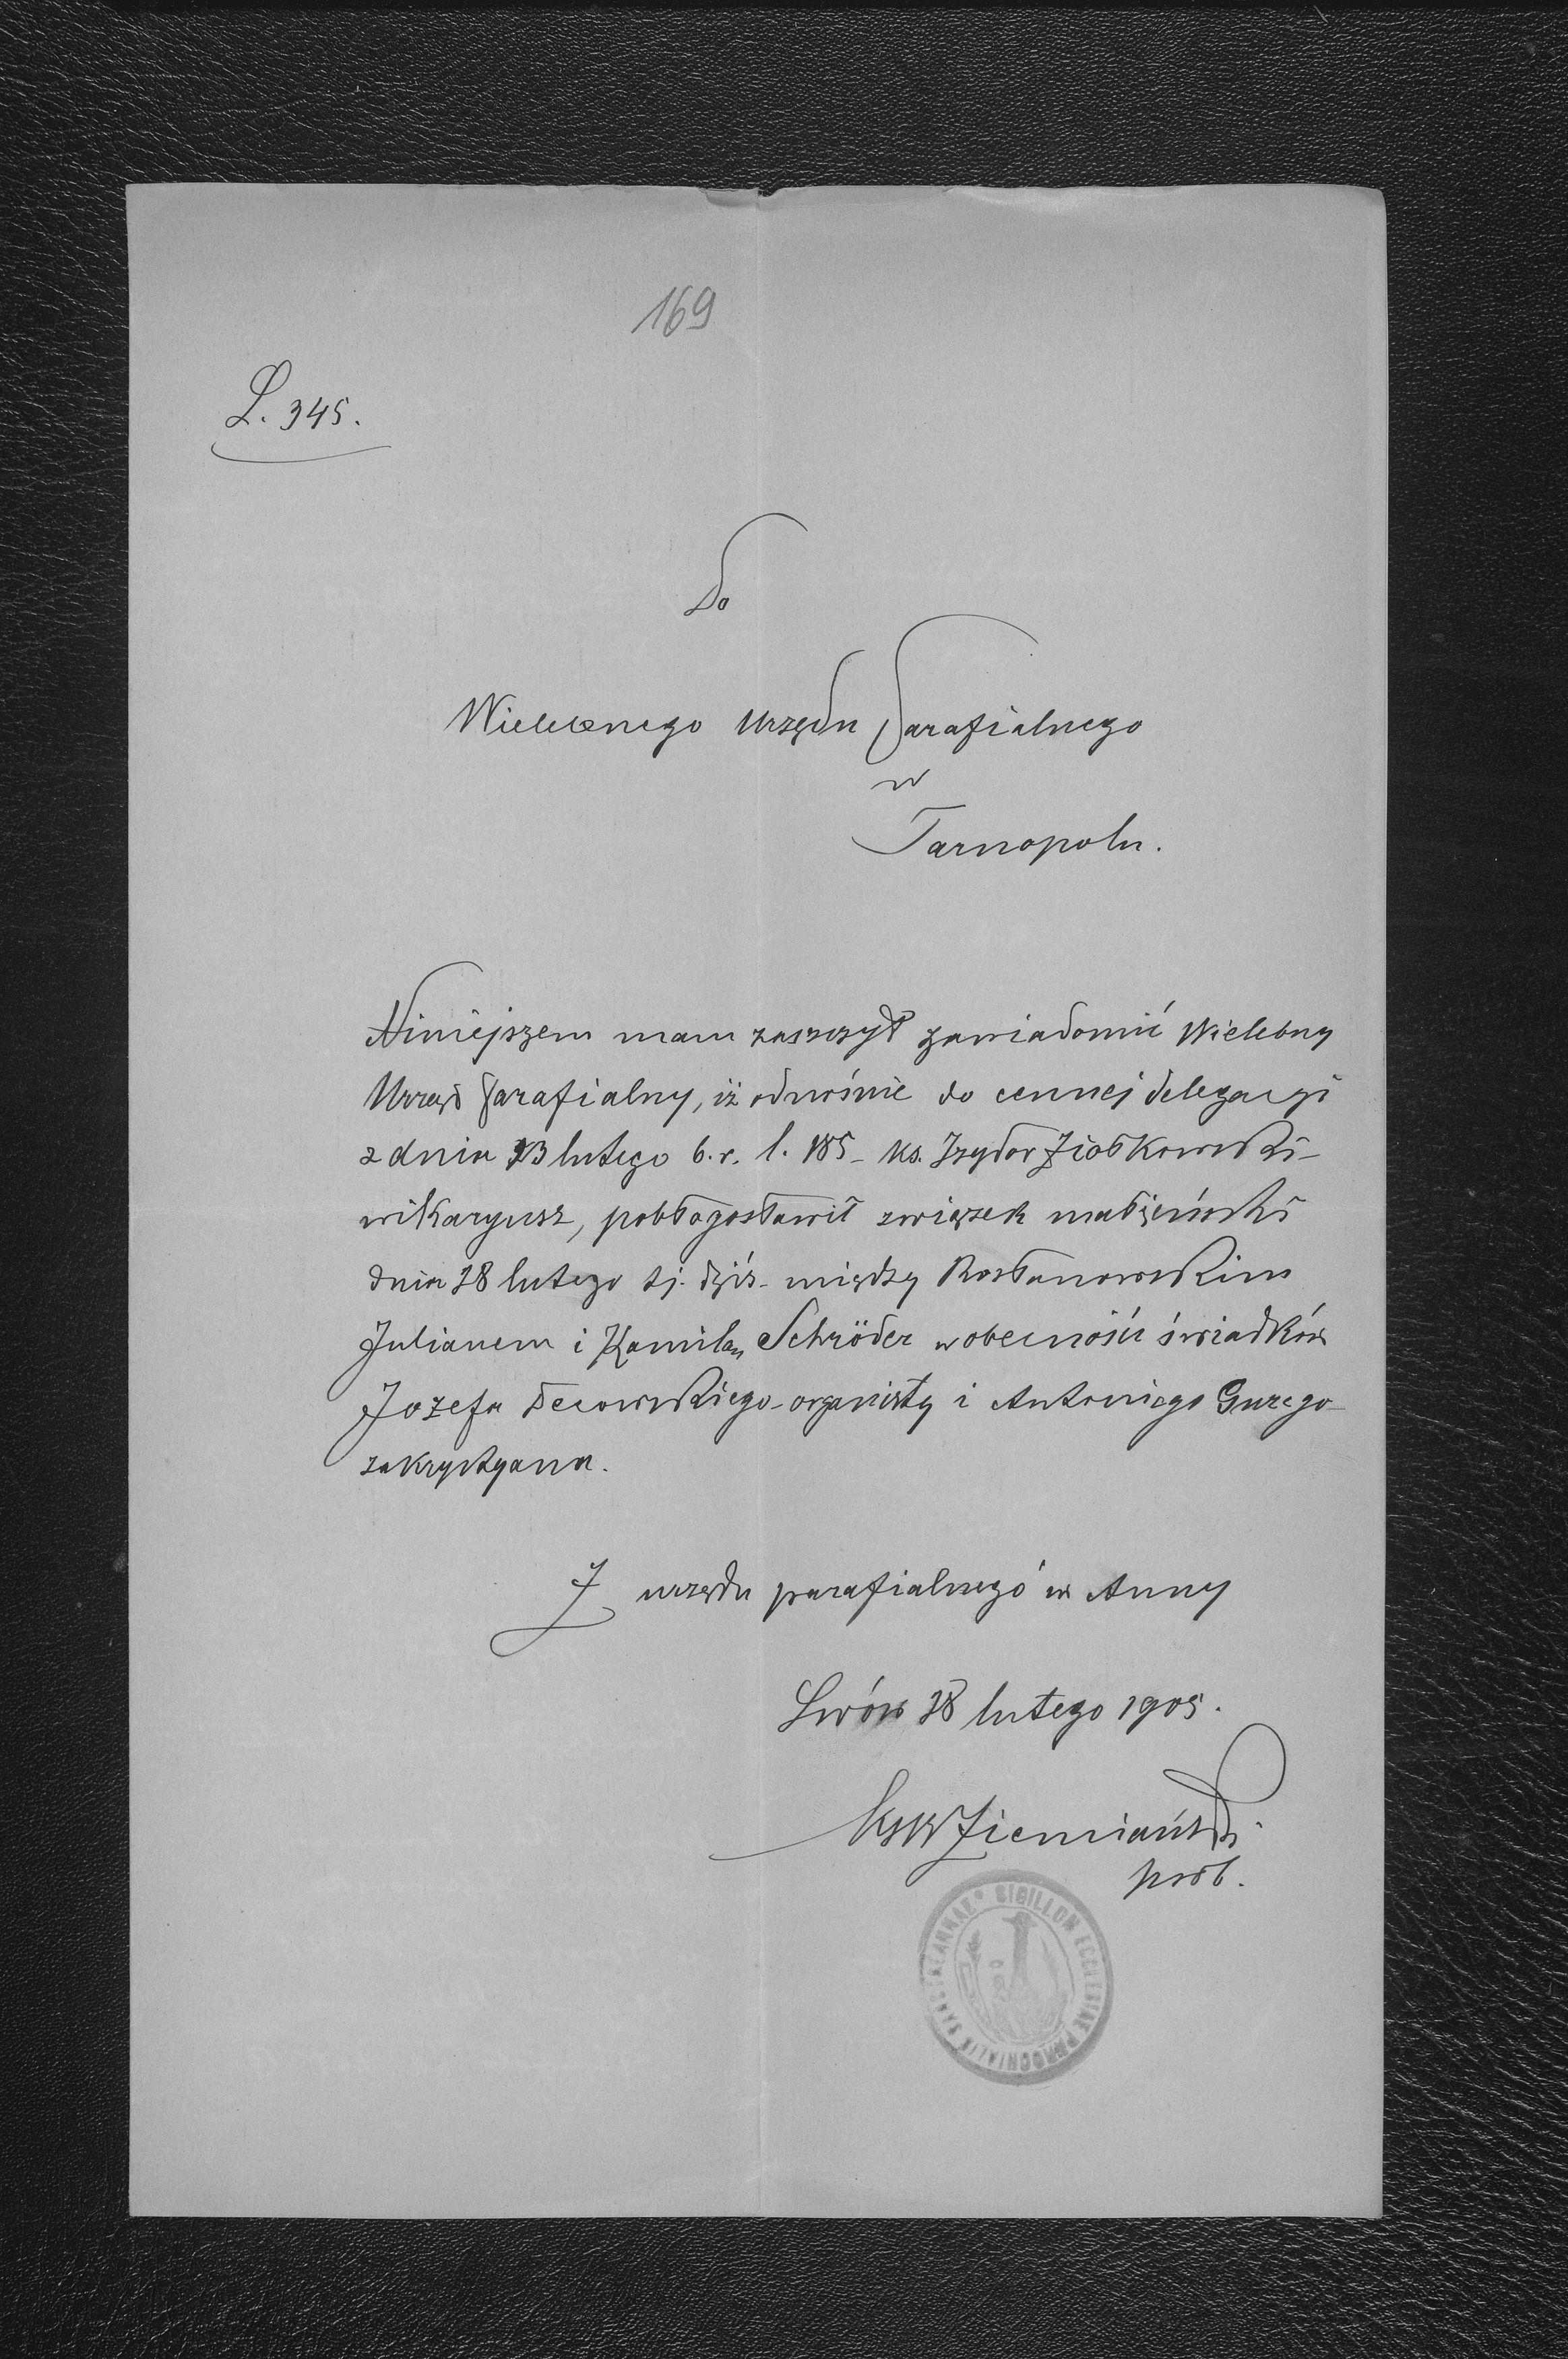 169
L. 345.
Do
Wielebnego Urzędu Parafialnego
w
Tarnopolu.
Niniejszem mam zaszczyt zawiadomić Wielebny
Urząd Parafialny, iż odnośnie do cennej delegacyi
z dnia 23 lutego b. r. l. 185 - ks. Izydor Ziołkowski -
wikaryusz, pobłogosławił związek małżeński
dnia 28 lutego tj. dziś - między Rosłanowskim
Julianem i Kamilą Schröder w obecności świadków
Jozefa Decowskiego - organisty i Antoniego Gurego -
zakrystyana.
Z urzędu parafialnego św Anny
Lwów 28 lutego 1905.
Ks W Ziemiański
prob.
SIGILLUM ECCLESIAE PAROCHIALIS SANCTAE ANNAE